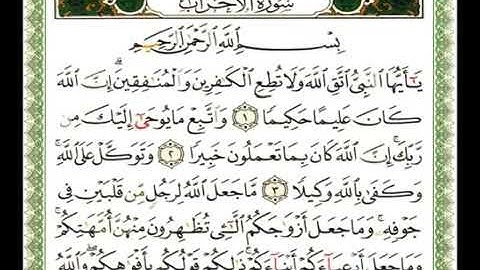 سُورَةُ الأَحْزَابِ
بِسْمِ ٱللَّهِ ٱلرَّحْمَٰنِ ٱلرَّحِيمِ
يَٰٓأَيُّهَا ٱلنَّبِيُّ ٱتَّقِ ٱللَّهَ وَلَا تُطِعِ ٱلْكَٰفِرِينَ وَٱلْمُنَٰفِقِينَۗ إِنَّ ٱللَّهَ
كَانَ عَلِيمًا حَكِيمًا ١ وَٱتَّبِعْ مَا يُوحَىٰٓ إِلَيْكَ مِن
رَّبِّكَۚ إِنَّ ٱللَّهَ كَانَ بِمَا تَعْمَلُونَ خَبِيرًا ٢ وَتَوَكَّلْ عَلَى ٱللَّهِۚ
وَكَفَىٰ بِٱللَّهِ وَكِيلًا ٣ مَّا جَعَلَ ٱللَّهُ لِرَجُلٍ مِّن قَلْبَيْنِ فِي
جَوْفِهِۦۚ وَمَا جَعَلَ أَزْوَٰجَكُمُ ٱلَّٰٓـِٔي تُظَٰهِرُونَ مِنْهُنَّ أُمَّهَٰتِكُمْۚ
وَمَا جَعَلَ أَدْعِيَآءَكُمْ أَبْنَآءَكُمْۚ ذَٰلِكُمْ قَوْلُكُم بِأَفْوَٰهِكُمْۖ وَٱللَّهُ